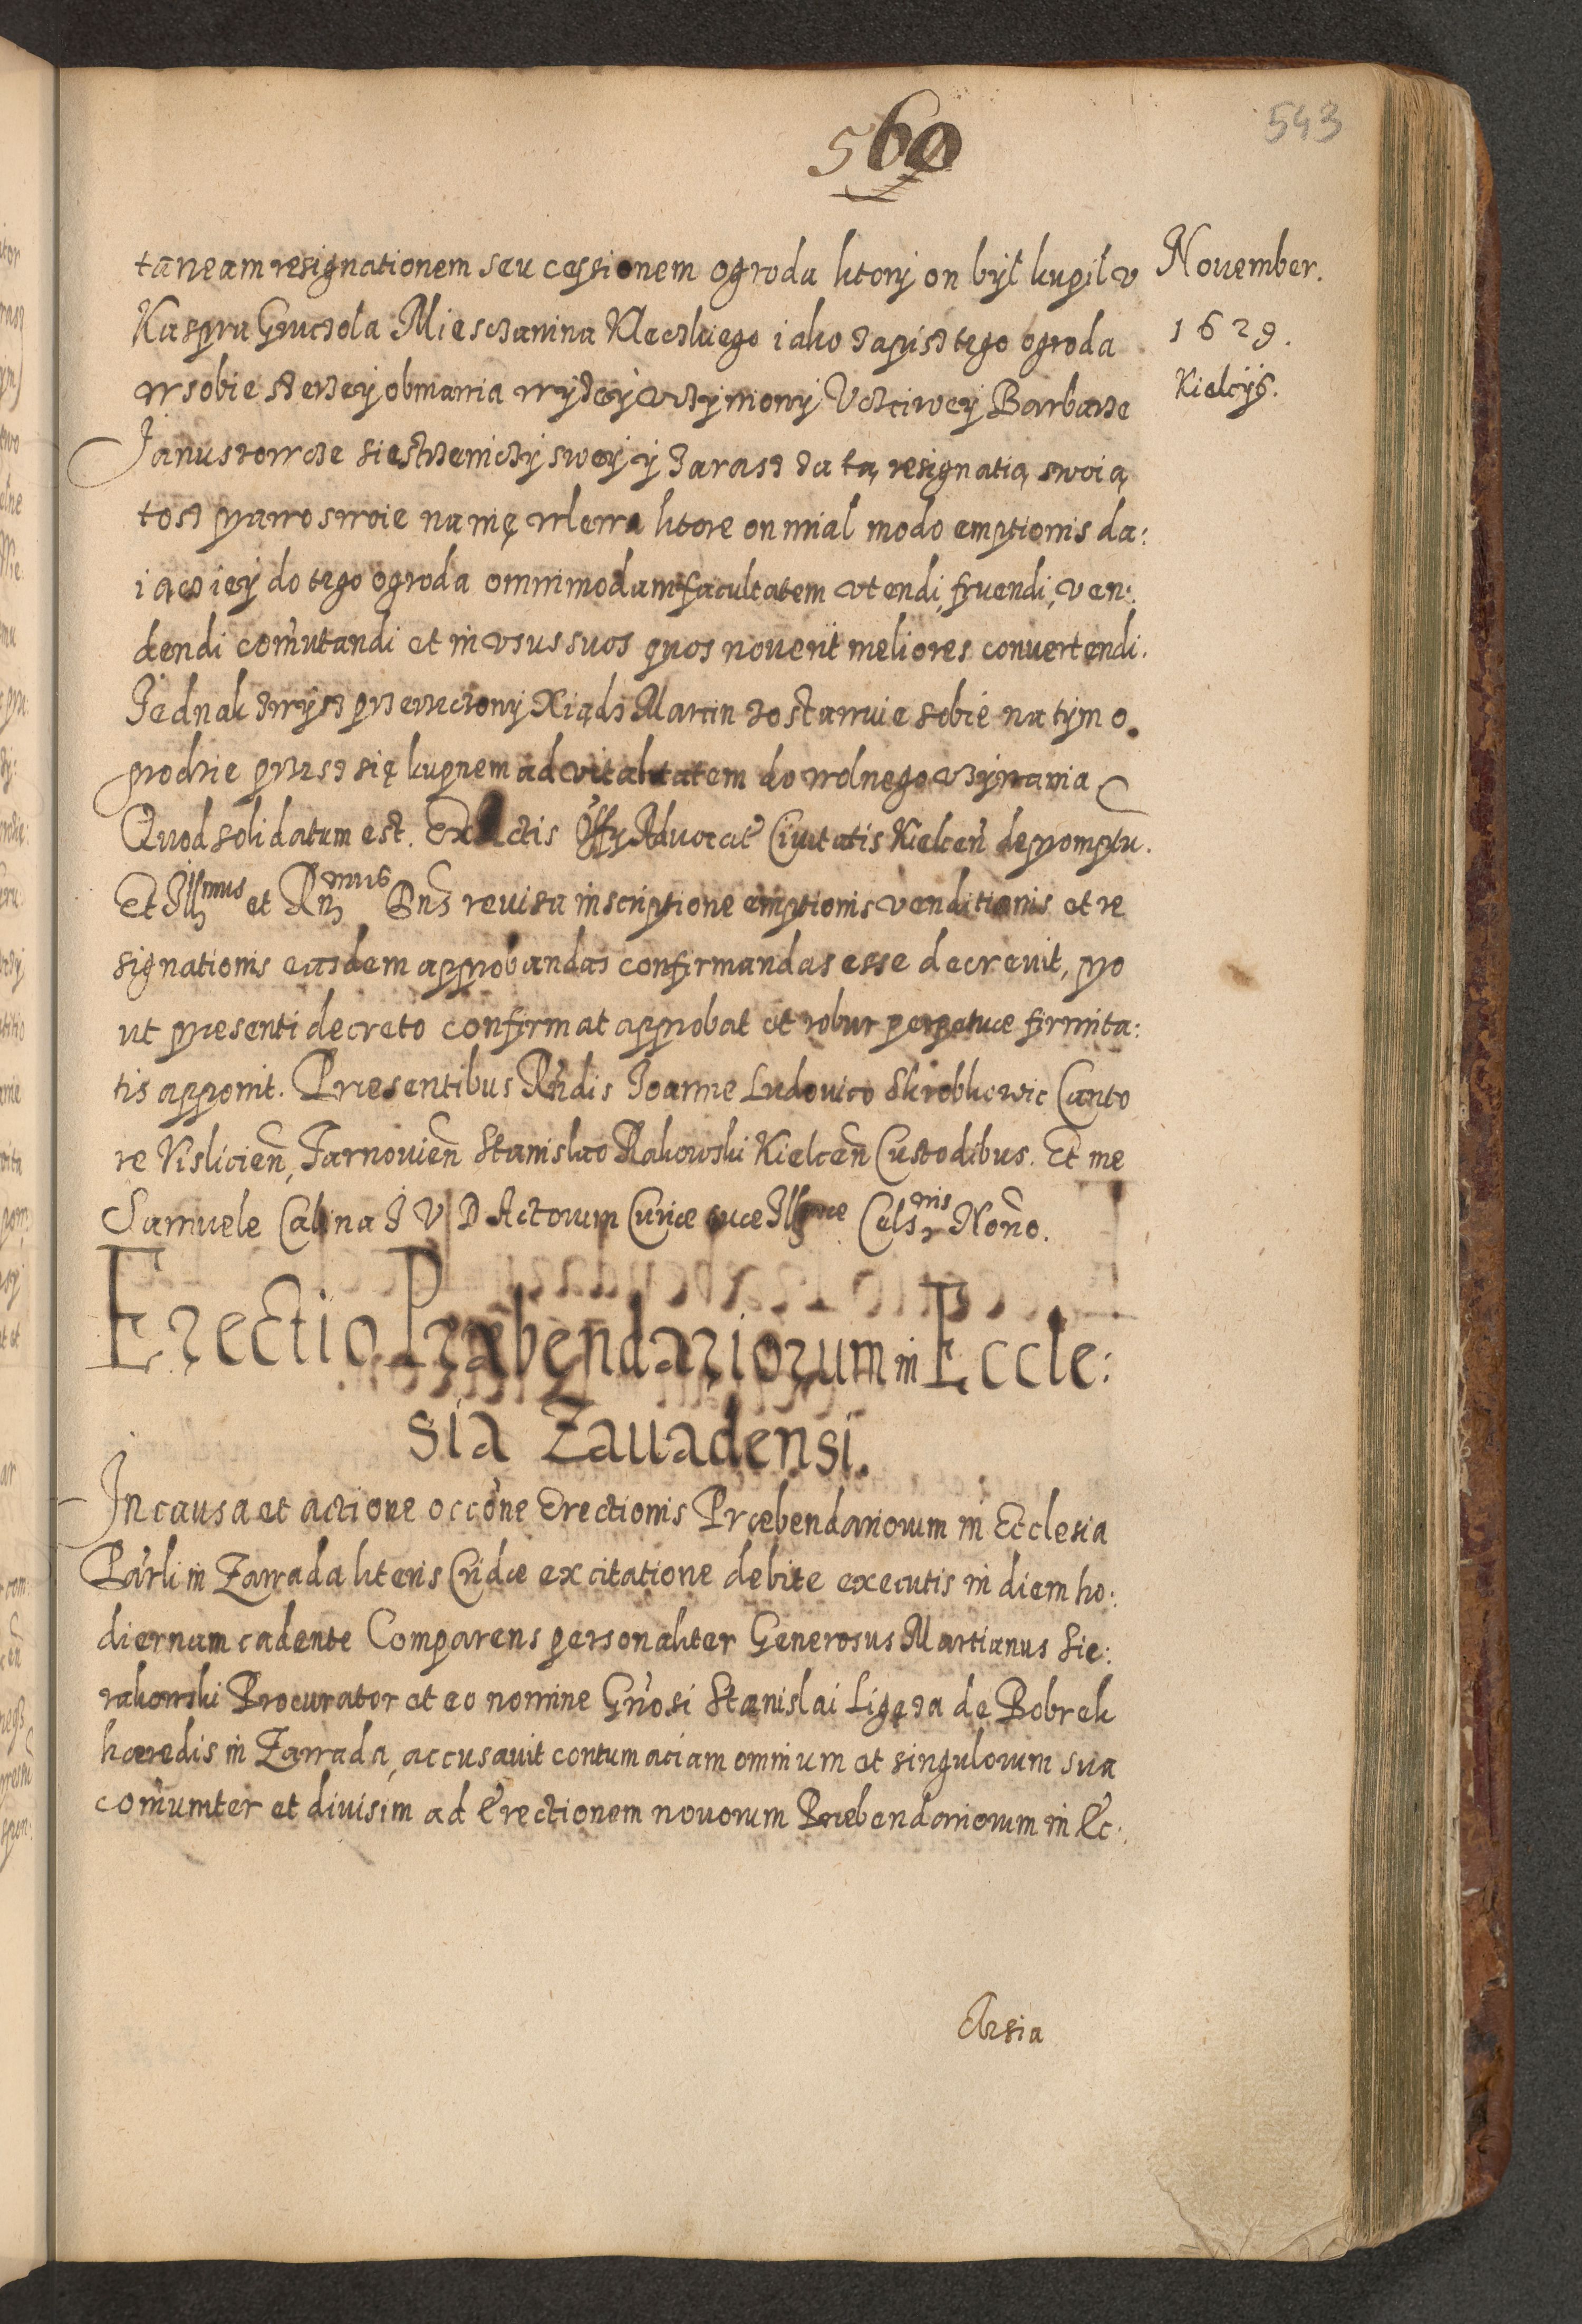 560
543
taneam resignationem seu cessionem ogroda ktory on był kupił v
Kaspra Gruczoła Miesczanina Kleczkiego iako zapisz tego ogroda
w sobie szerzey obmawia wyżey vczyniony Vczciwey Barbarze
Januszowcze siestrzeniczy swey y zarasz za tą resignatią swoią
tosz prawo swoie na nię wlewa ktore on miał modo emptionis da:
iącz iey do tego ogroda omnimodam facultatem vtendi, fruendi, ven:
dendi com̃utandi et in vsus suos quos nouerit meliores conuertendi.
Jednak zwysz przerzeczony Xiądz Marcin zostawuie sobie na tym o
grodzie przesz się kupnem ad vitalitatem do wolnego vżywania
Quod solidatum est. Ex Actis Offy Aduocat Ciuitatis Kielcen̄ depromptu.
Et Illmus et Rnmus Dns reuisa inscriptione emptionis venditionis et re
signationis easdem approbandas confirmandas esse decreuit, pro
ut præsenti decreto confirmat approbat et robur perpetuæ firmita:
tis apponit. Præsentibus Rn̄dis Joanne Ludovico Skrobkowic Canto
re Vislicien̄, Tarnouien̄ Stanislao Rakowski Kielcen̄ Custodibus. Et me
Samuele Calina J V D Actorum Curiæ suæ Illmæ Celsnis Notrio.
Erectio Præbendariorum in Eccle:
sia Zauadensi.
In causa et actione occōne Erectionis Præbendariorum in Ecclesia
Pārli in Zawada literis Cridæ ex citatione debite executis in diem ho:
diernam cadente Comparens personaliter Generosus Martianus Sie:
rakowski Procurator et eo nomine Gn̄osi Stanislai Ligęza de Bobrek
hæredis in Zawada, accusauit contumaciam omnium et singulorum sua
com̃uniter et diuisim ad Erectionem nouorum Præbendariorum in Ec:
clesia
November.
1629.
Kielcijs.